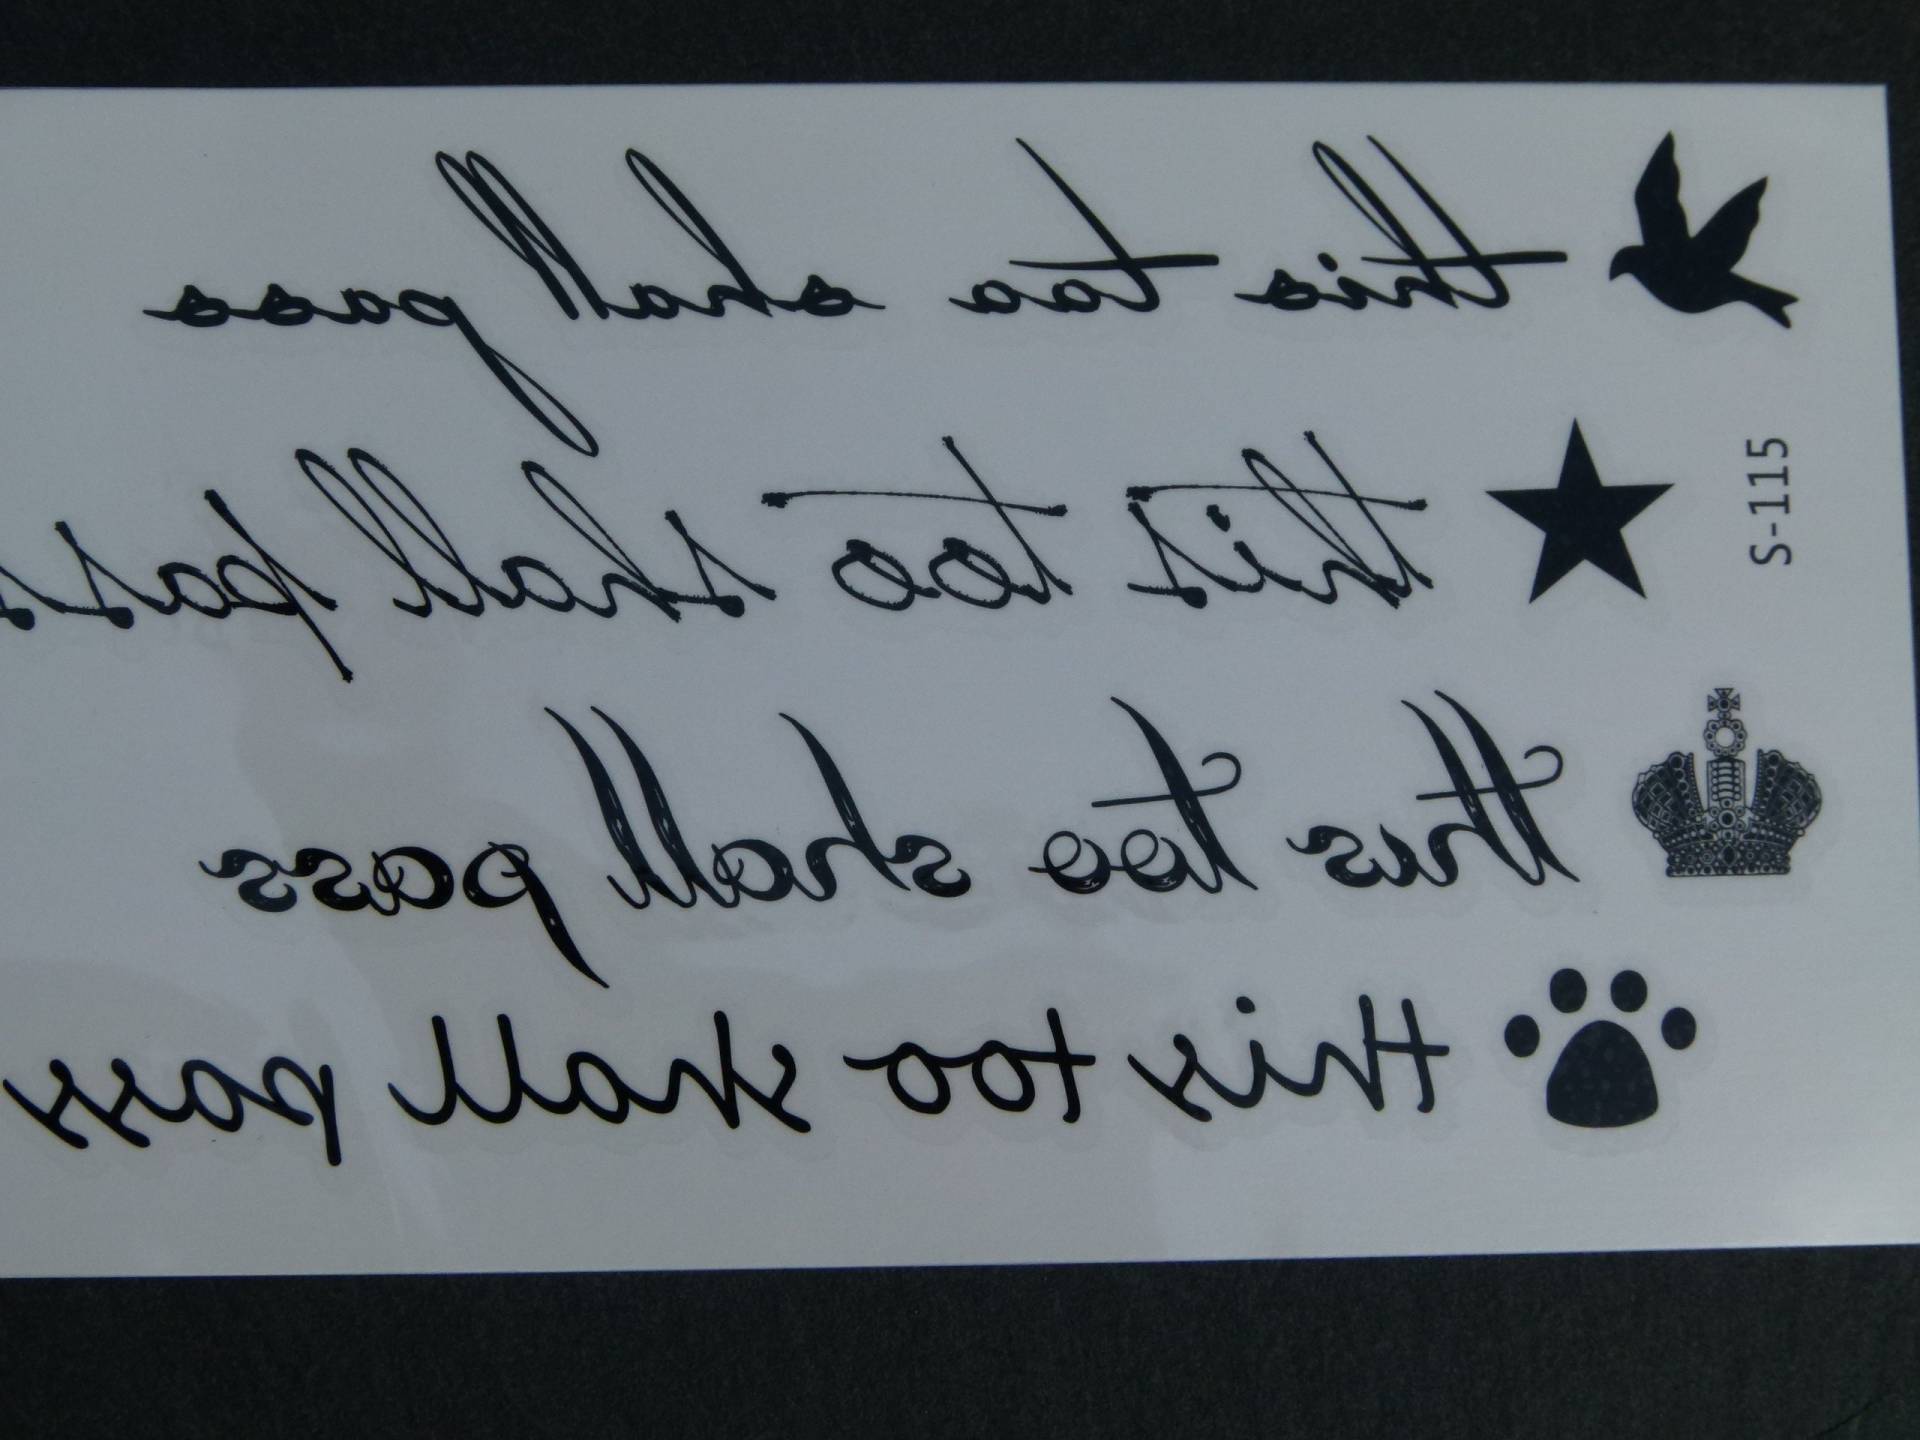 this too shall pass
this too shall pass
S-115
this too shall pass
this too shall pass